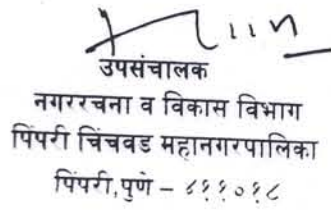 उपसंचालक
नगररचना व विकास विभाग
पिंपरी चिंचवड महानगरपालिका
पिंपरी, पुणे – ४११०१८